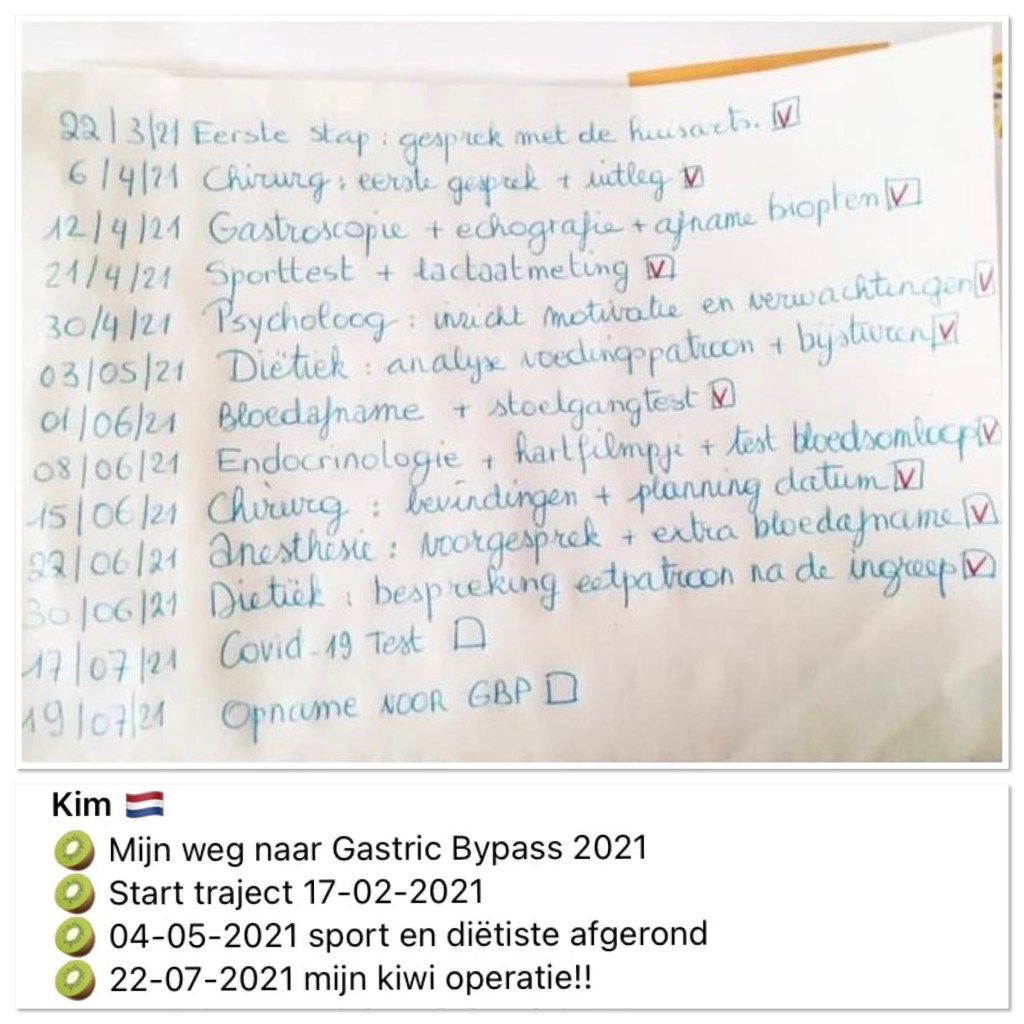 22/3/21 Eerste stap : gesprek met de huisarts. ☑
6/4/21 Chirurg : eerste gesprek + uitleg ☑
12/4/21 Gastroscopie + echografie + afname biopten ☑
21/4/21 Sporttest + lactaatmeting ☑
30/4/21 Psycholoog : inzicht motivatie en verwachtingen ☑
03/05/21 Diëtiek : analyse voedingspatroon + bijsturen ☑
01/06/21 Bloedafname + stoelgangtest ☑
08/06/21 Endocrinologie + hartfilmpje + test bloedsomloop ☑
15/06/21 Chirurg : bevindingen + planning datum ☑
22/06/21 Anesthesie : voorgesprek + extra bloedafname ☑
30/06/21 Dietiëk : bespreking eetpatroon na de ingreep ☑
17/07/21 Covid-19 Test ☐
19/07/21 Opname VOOR GBP ☐
Kim 🇳🇱
🥝 Mijn weg naar Gastric Bypass 2021
🥝 Start traject 17-02-2021
🥝 04-05-2021 sport en diëtiste afgerond
🥝 22-07-2021 mijn kiwi operatie!!